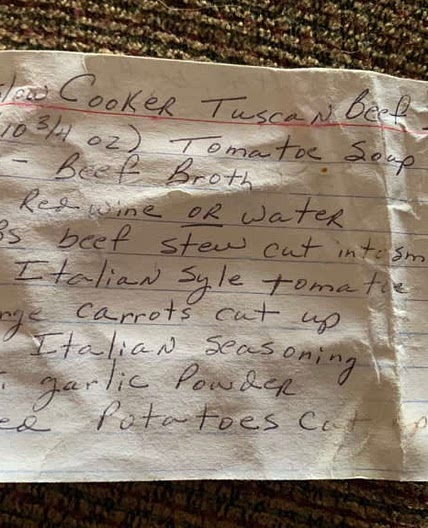 low Cooker Tuscan Beef
10 3/4 oz) Tomatoe Soup
- Beef Broth
Red wine OR water
beef stew cut into sm
Italian Syle tomatoe
nge carrots cut up
Italian Seasoning
garlic Powder
ed Potatoes Cut